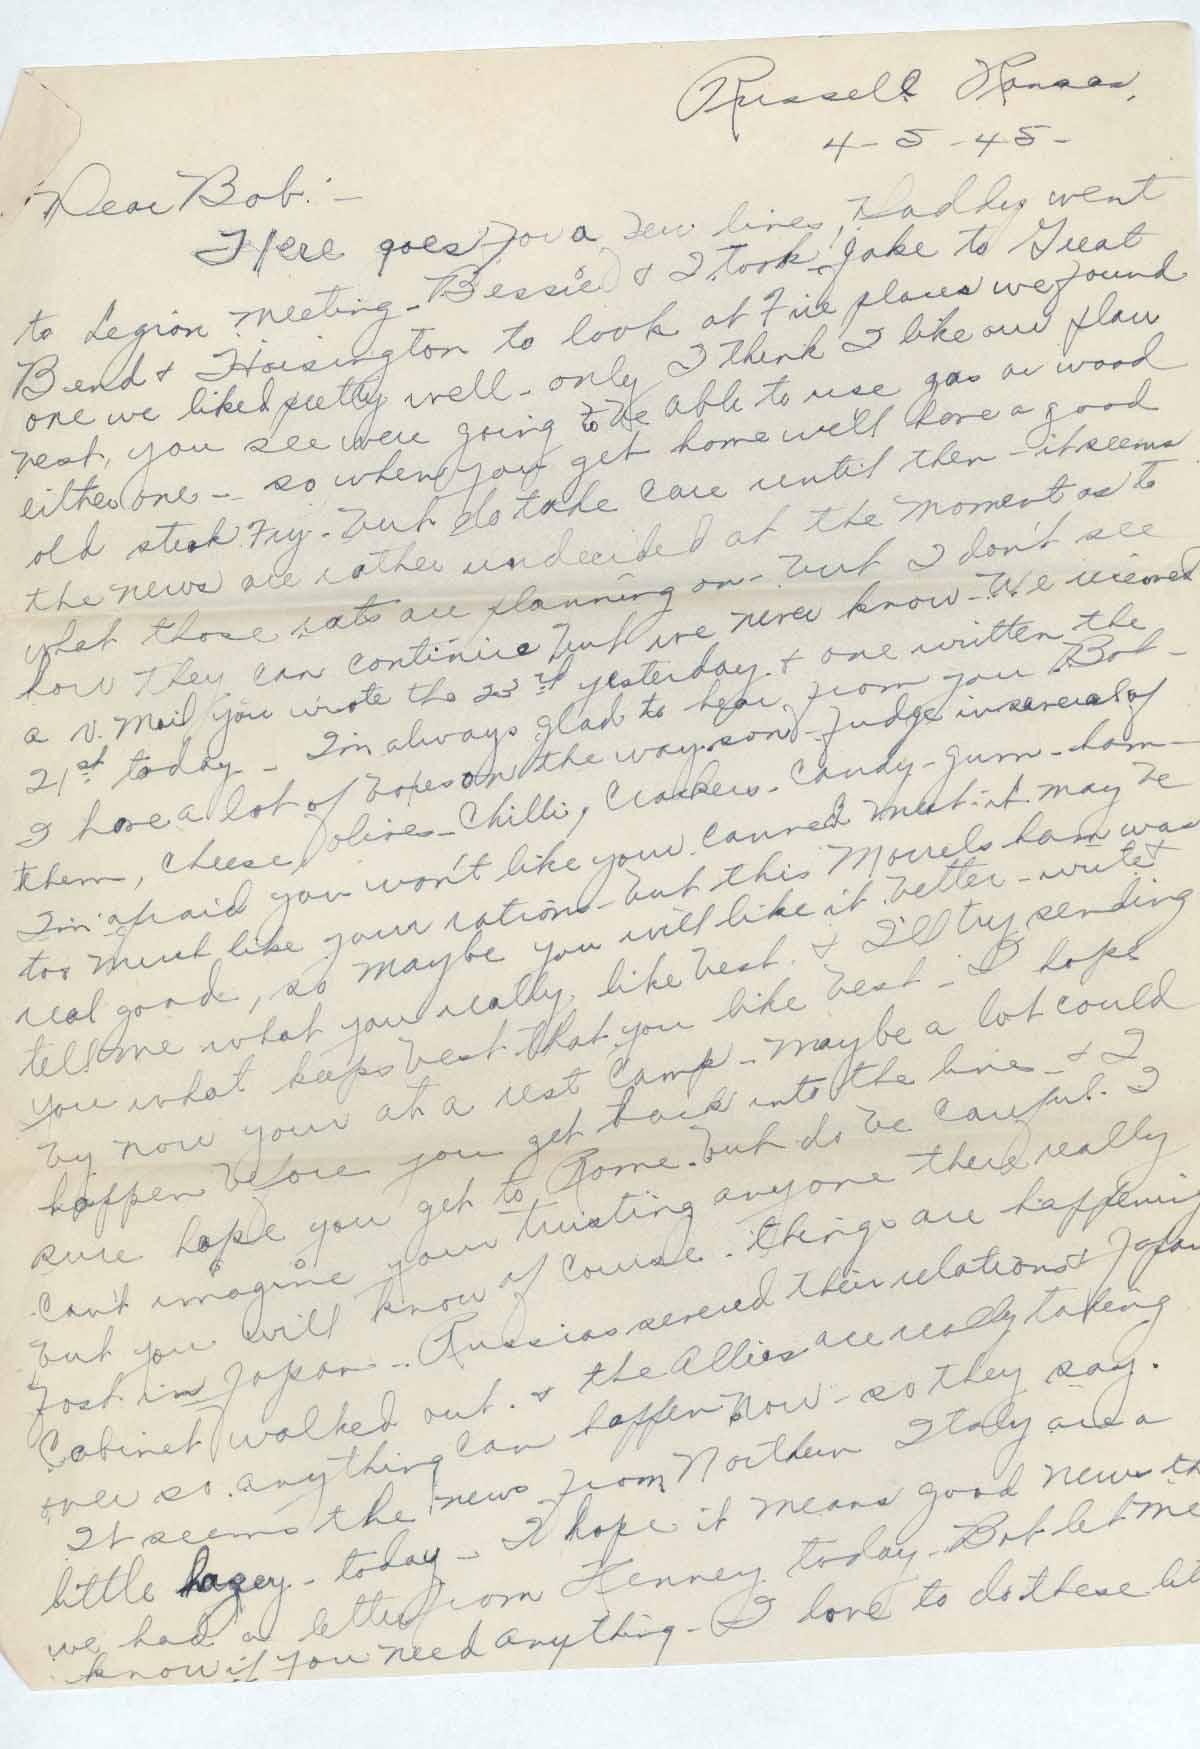 Russell Kansas,
4-5-45-
Dear Bob:-
Here goes for a few lines, Daddy went
to Legion meeting - Bessie & I took Jake to Great
Bend & Hoisington to look at Fire places we found
one we liked pretty well - only I think I like our plan
best, you see were going to be able to use gas or wood
either one - so when you get home we'll have a good
old steak Fry - but do take care until then - it seems
the news are rather undecided at the moment as to
what those rats are planning on - but I don't see
how they can continue but we never know - We recieved
a V. Mail you wrote the 23rd yesterday & one written the
21st today - I'm always glad to hear from you Bob -
I have a lot of boxes on the way son - fudge in several of
them, cheese, olives - Chilli, Crackers - Candy - gum - ham -
I'm afraid you won't like your canned meat it may be
too much like your rations - but this Morrels ham was
real good, so maybe you will like it better - write &
tell me what you really like best & I'll try sending
you what keeps best that you like best - I hope
by now your at a rest camp - maybe a lot could
happen before you get back into the lines - & I
sure hope you get to Rome. but do be careful. I
can't imagine your trusting anyone there really
but you will know of course - things are happening
fast in Japan - Russias severed their relations & Japan
Cabinet walked out. & the Allies are really taking
over so anything can happen now - so they say.
It seems the news from Northern Italy are a
little hazey - today - I hope it means good news th
we had a letter from Kenney today - Bob let me
know if you need anything - I love to do these lit